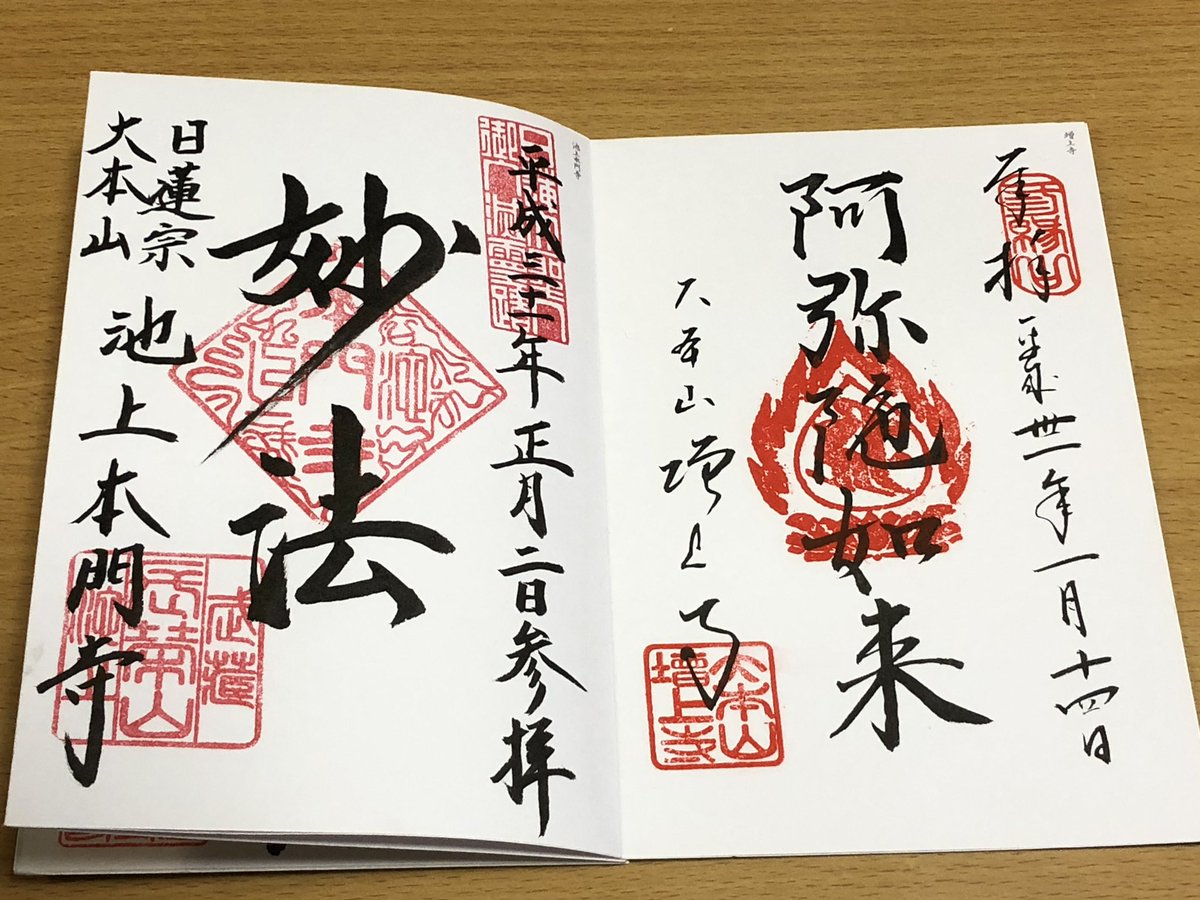 増上寺
奉拝
平成卅一年一月十四日
阿弥陀如来
大本山増上寺
大本山
増上寺
池上本門寺
平成三十一年正月二日参拝
妙法
日蓮宗
大本山
池上本門寺
武蔵